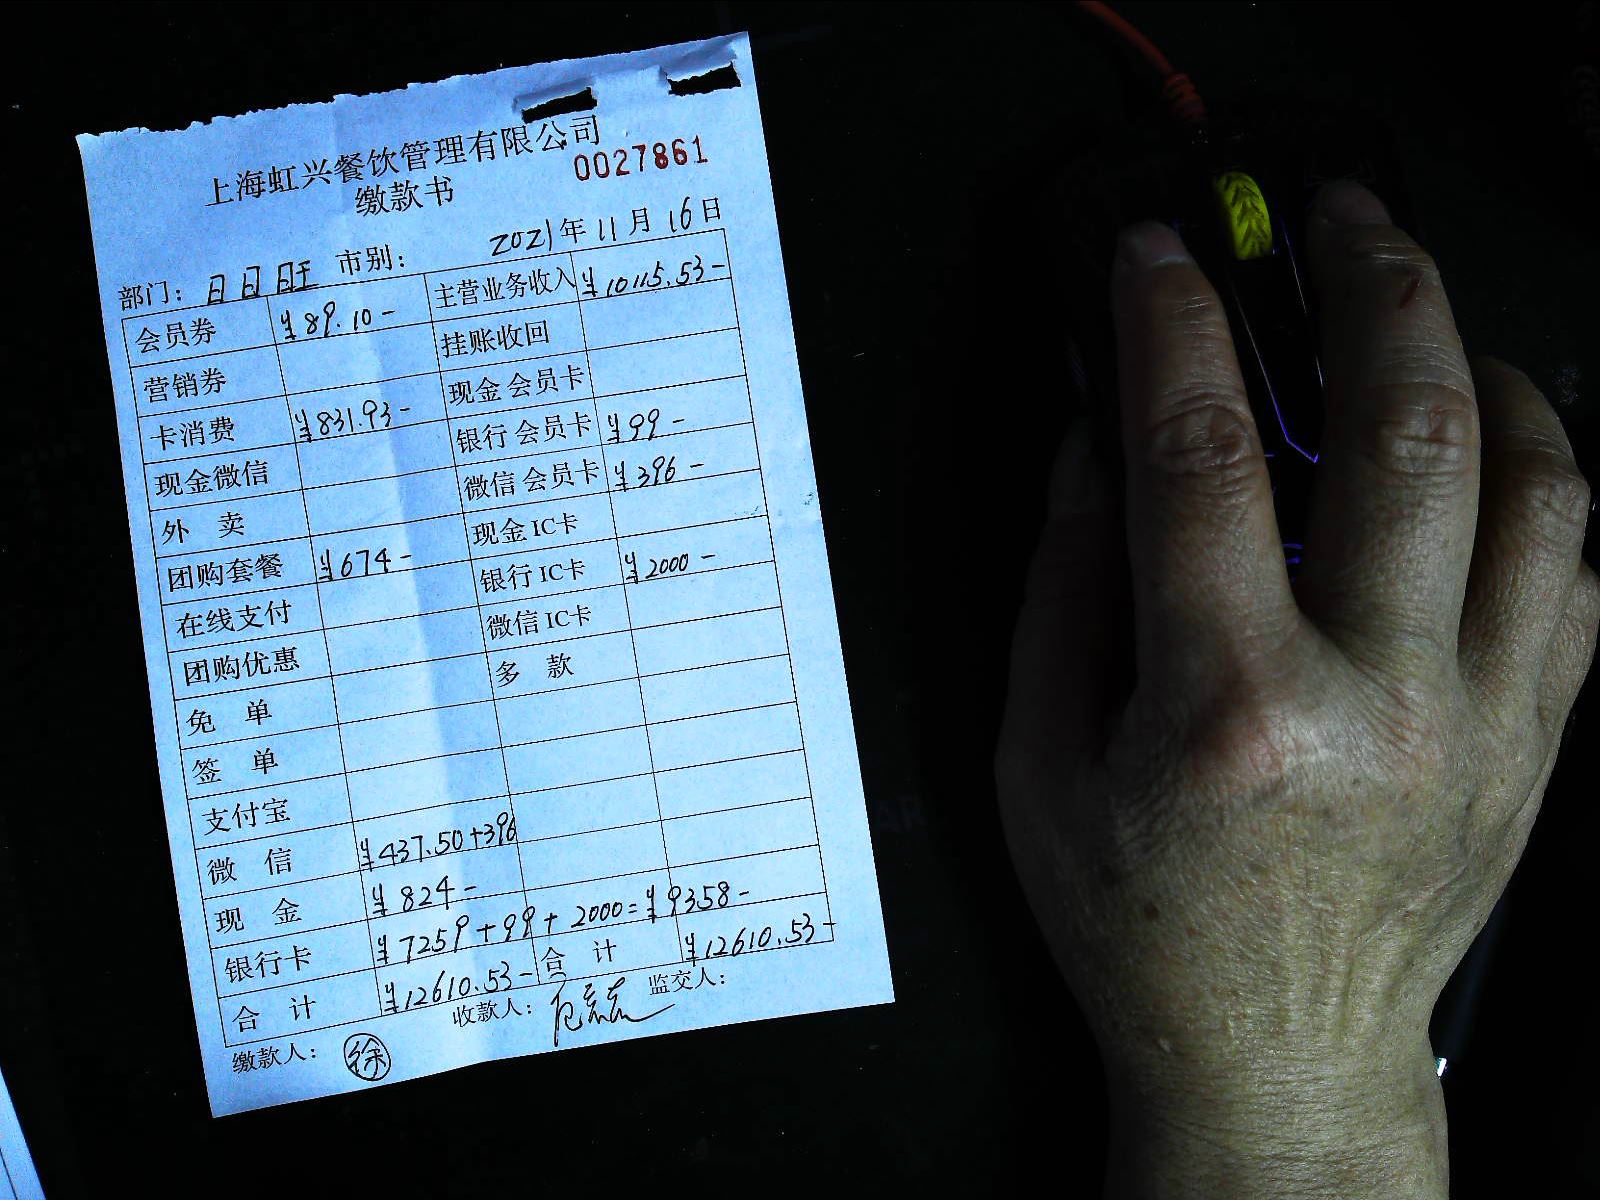 上海虹兴餐饮管理有限公司
0027861
缴款书
2021年11月16日
部门：日日旺 市别：
会员券 ¥89.10- 主营业务收入 ¥10115.53-
营销券 挂账收回
卡消费 ¥831.93- 现金会员卡
现金微信 银行会员卡 ¥99-
外 卖 微信会员卡 ¥396-
团购套餐 ¥674- 现金IC卡
在线支付 银行IC卡 ¥2000-
团购优惠 微信IC卡
免 单 多 款
签 单
支付宝
微 信 ¥437.50+396
现 金 ¥824-
银行卡 ¥7259+99+2000=¥9358-
合 计 ¥12610.53- 合 计 ¥12610.53-
缴款人：徐 收款人： 监交人：